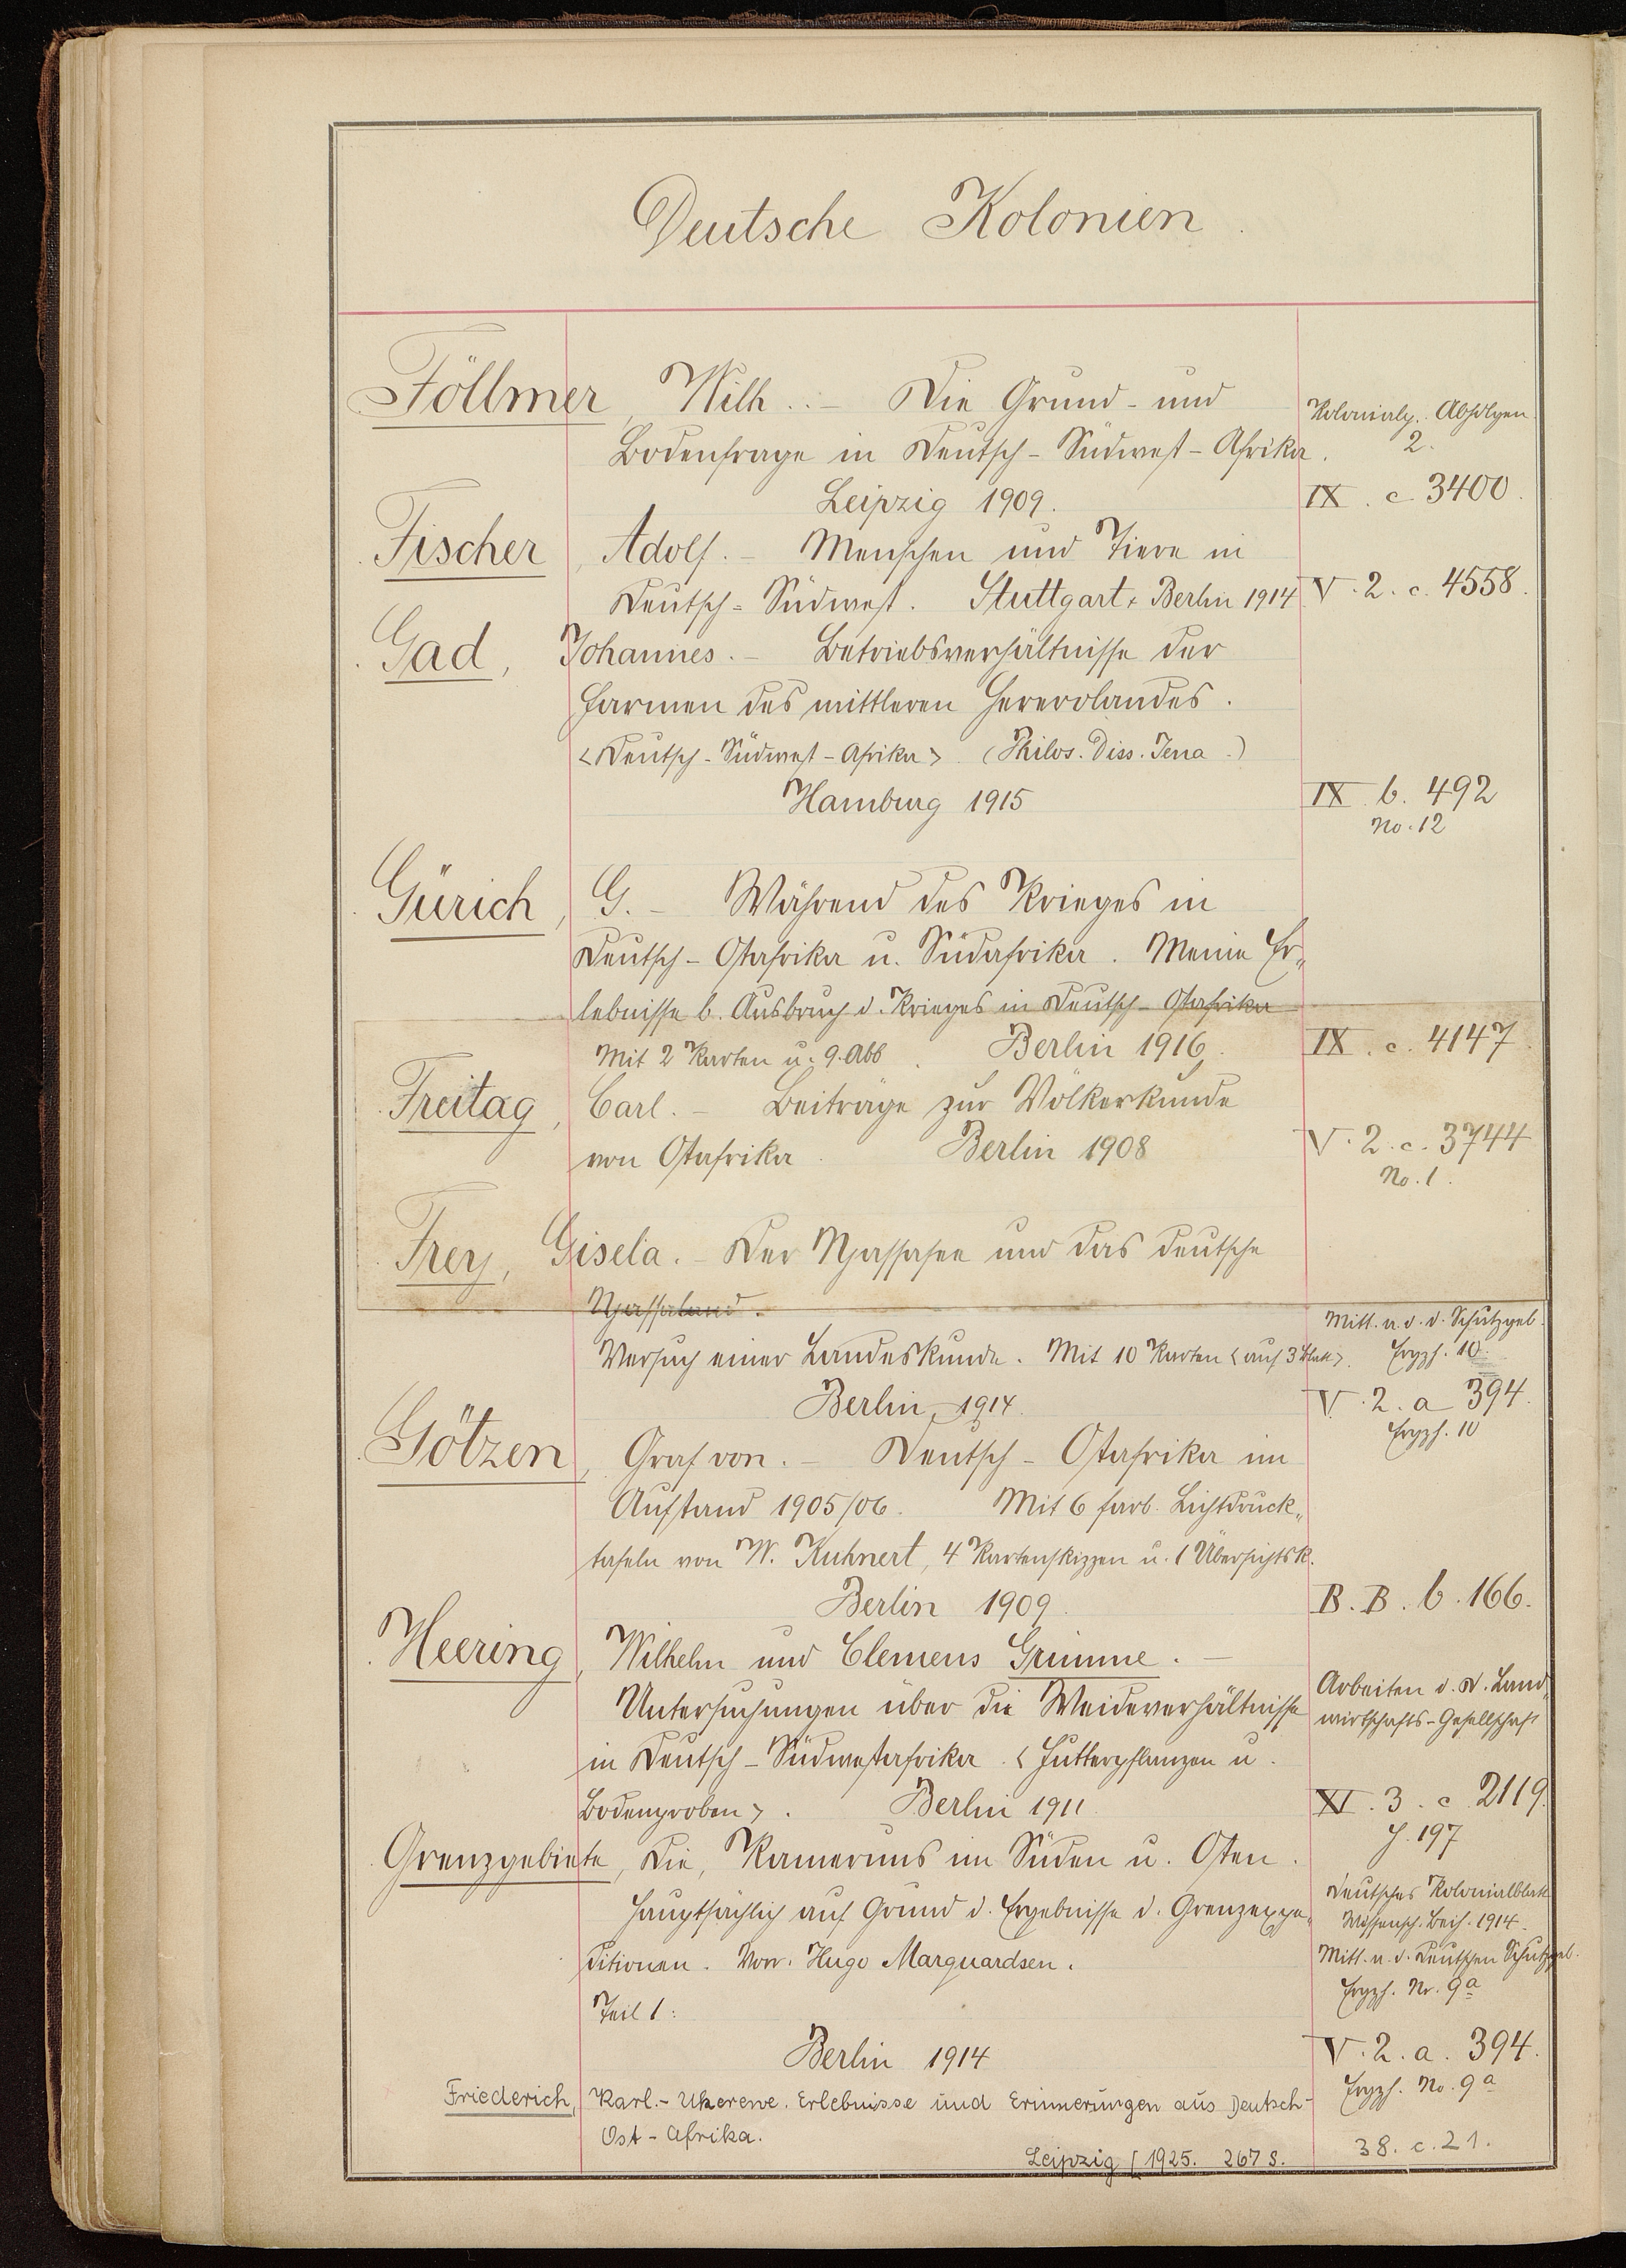 Deutsche Kolonien
Föllmer, Wilh. – Die Grund- und
Bodenfrage in Deutsch-Südwest-Afrika.
Kolonialp. Abhdlgen
2.
Leipzig 1909.
IX. c 3400.
Fischer, Adolf. – Menschen und Tiere in
Deutsch-Südwest. Stuttgart & Berlin 1914
V. 2. c. 4558.
Gad, Johannes. – Betriebsverhältnisse der
Farmen des mittleren Hererolandes.
<Deutsch-Südwest-Afrika>. (Philos. Diss. Jena.)
Hamburg 1915
IX b. 492
No. 12
Gürich, G. – Während des Krieges in
Deutsch-Ostafrika u. Südafrika. Meine Er-
lebnisse b. Ausbruch d. Krieges in Deutsch-Ostafrika
Mit 2 Karten u. 9. Abb. Berlin 1916.
IX. c. 4147.
Freitag, Carl. – Beiträge zur Völkerkunde
von Ostafrika. Berlin 1908
V. 2. c. 3744
No. 1.
Frey, Gisela. – Der Njassasee und das deutsche
Njassaland.
Versuch einer Landeskunde. Mit 10 Karten <auf 3 Blatt>.
Mitt. a. d. d. Schutzgeb.
Ergzh. 10.
Berlin, 1914.
V. 2. a 394.
Ergzh. 10
Götzen, Graf von. – Deutsch-Ostafrika im
Aufstand 1905/06. Mit 6 farb. Lichtdruck-
tafeln von W. Kuhnert, 4 Kartenskizzen u. 1 Übersichtsk.
Berlin 1909.
B. B. b. 166.
Heering, Wilhelm und Clemens Grimme. –
Untersuchungen über die Weideverhältnisse
in Deutsch-Südwestafrika. <Futterpflanzen u.
Bodenproben>. Berlin 1911.
Arbeiten d. D. Land-
wirtschafts-Gesellschaft
XI. 3. c 2119.
H. 197
Grenzgebiete, Die, Kameruns im Süden u. Osten.
Hauptsächlich auf Grund d. Ergebnisse d. Grenzexpe-
ditionen. Von Hugo Marquardsen.
Teil 1:
Berlin 1914
Deutsches Kolonialblatt
Wissensch. Beih. 1914.
Mitt. a. d. Deutschen Schutzgeb.
Ergzh. Nr. 9a
V. 2. a. 394.
Ergzh. No. 9a
Friederich, Karl. – Ukerewe. Erlebnisse und Erinnerungen aus Deutsch-
Ost-Afrika.
Leipzig [1925. 267 S.
38. c. 21.